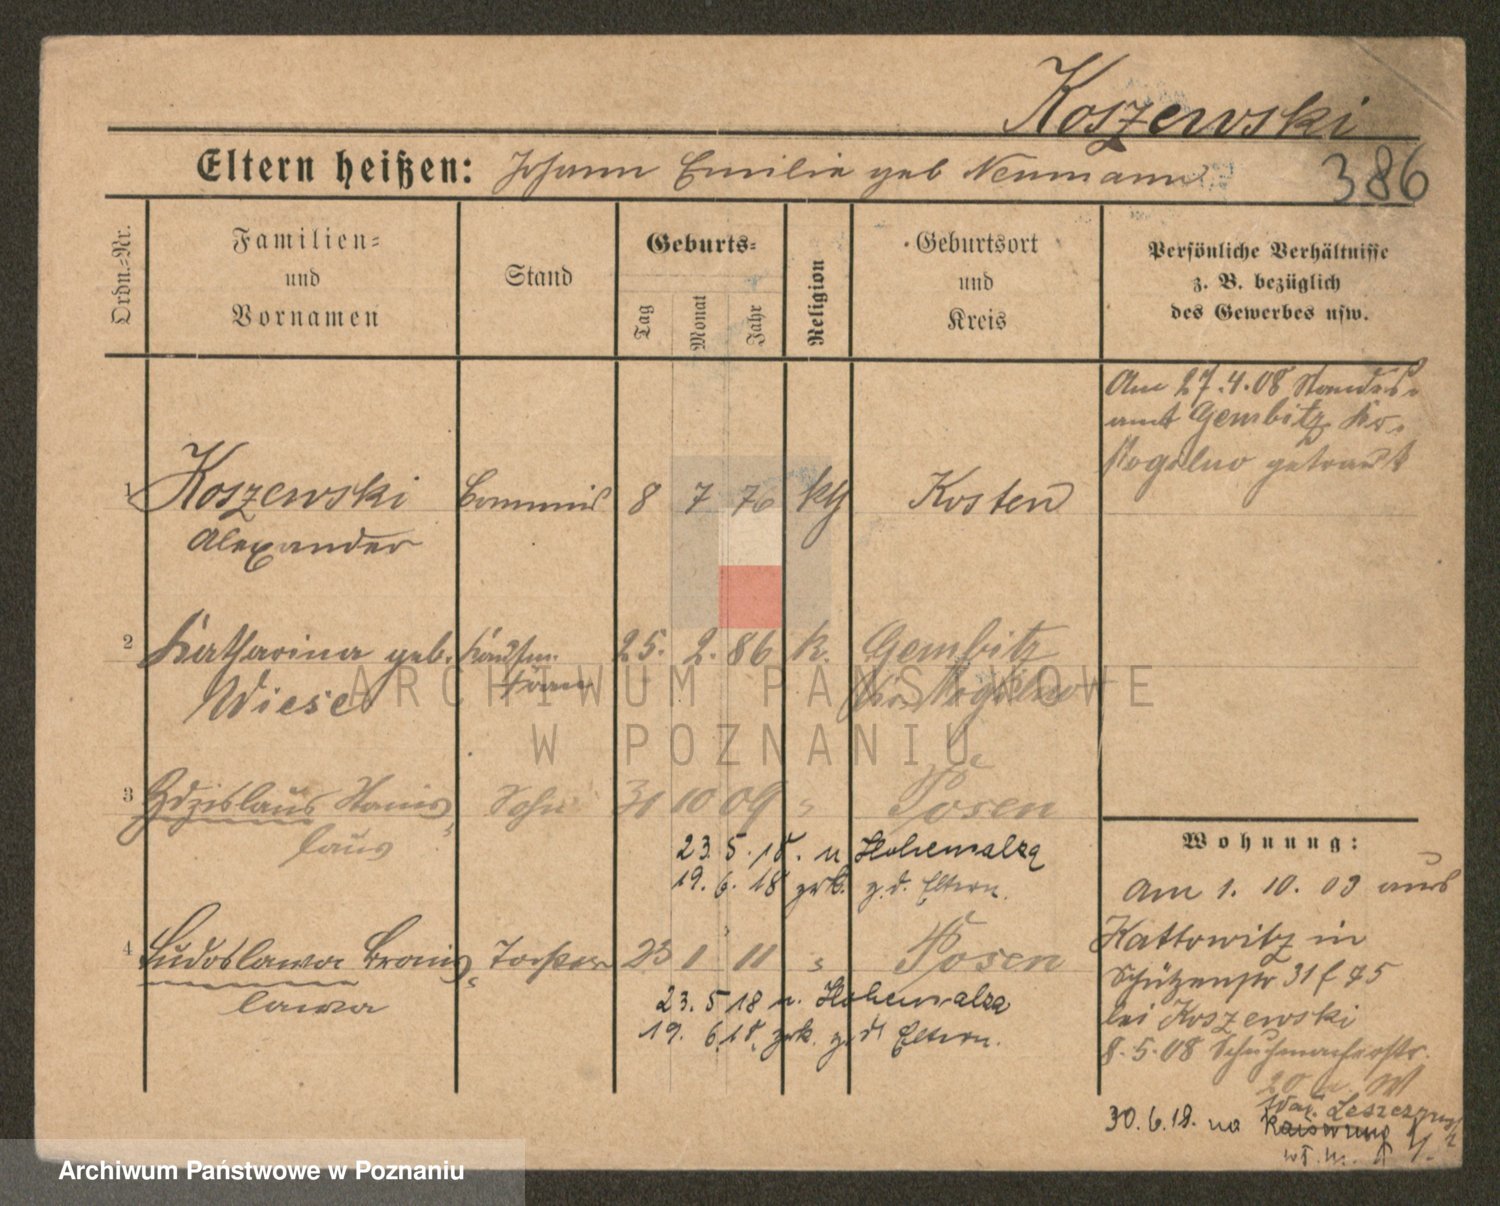 Koszewski
Eltern heißen: Johann Emilie geb Neumann
386
Ordn.-Nr.
Familien-
und
Vornamen
Stand
Geburts-
Tag
Monat
Jahr
Religion
Geburtsort
und
Kreis
Persönliche Verhältnisse
z. B. bezüglich
des Gewerbes usw.
Am 27.4.08 Standes-
amt Gembitz Kr.
Mogilno getraut
1 Koszewski Commis 8 7 76 kth Kosten
Alexander
2 Katharina geb. Kaufm. 25. 2. 86 k. Gembitz
Wiese frau Kr. Mogilno
ARCHIWUM PAŃSTWOWE
W POZNANIU
3 Zdzislaus Stanis- Sohn 31 10 09 " Posen
laus
23. 5. 18. n Hohensalza
19. 6. 18 zrk. z. d. Eltern.
4 Ludoslawa Bronis- Tochter 23 1 11 " Posen
lawa
23. 5 18 n. Hohensalza
19. 6.18. zrk. z. d Eltern.
Wohnung:
Am 1. 10. 03 aus
Kattowitz in
Schützenstr 31 f 75
bei Koszewski
8. 5. 08 Schuhmacherstr.
20
30. 6. 19. na
Archiwum Państwowe w Poznaniu